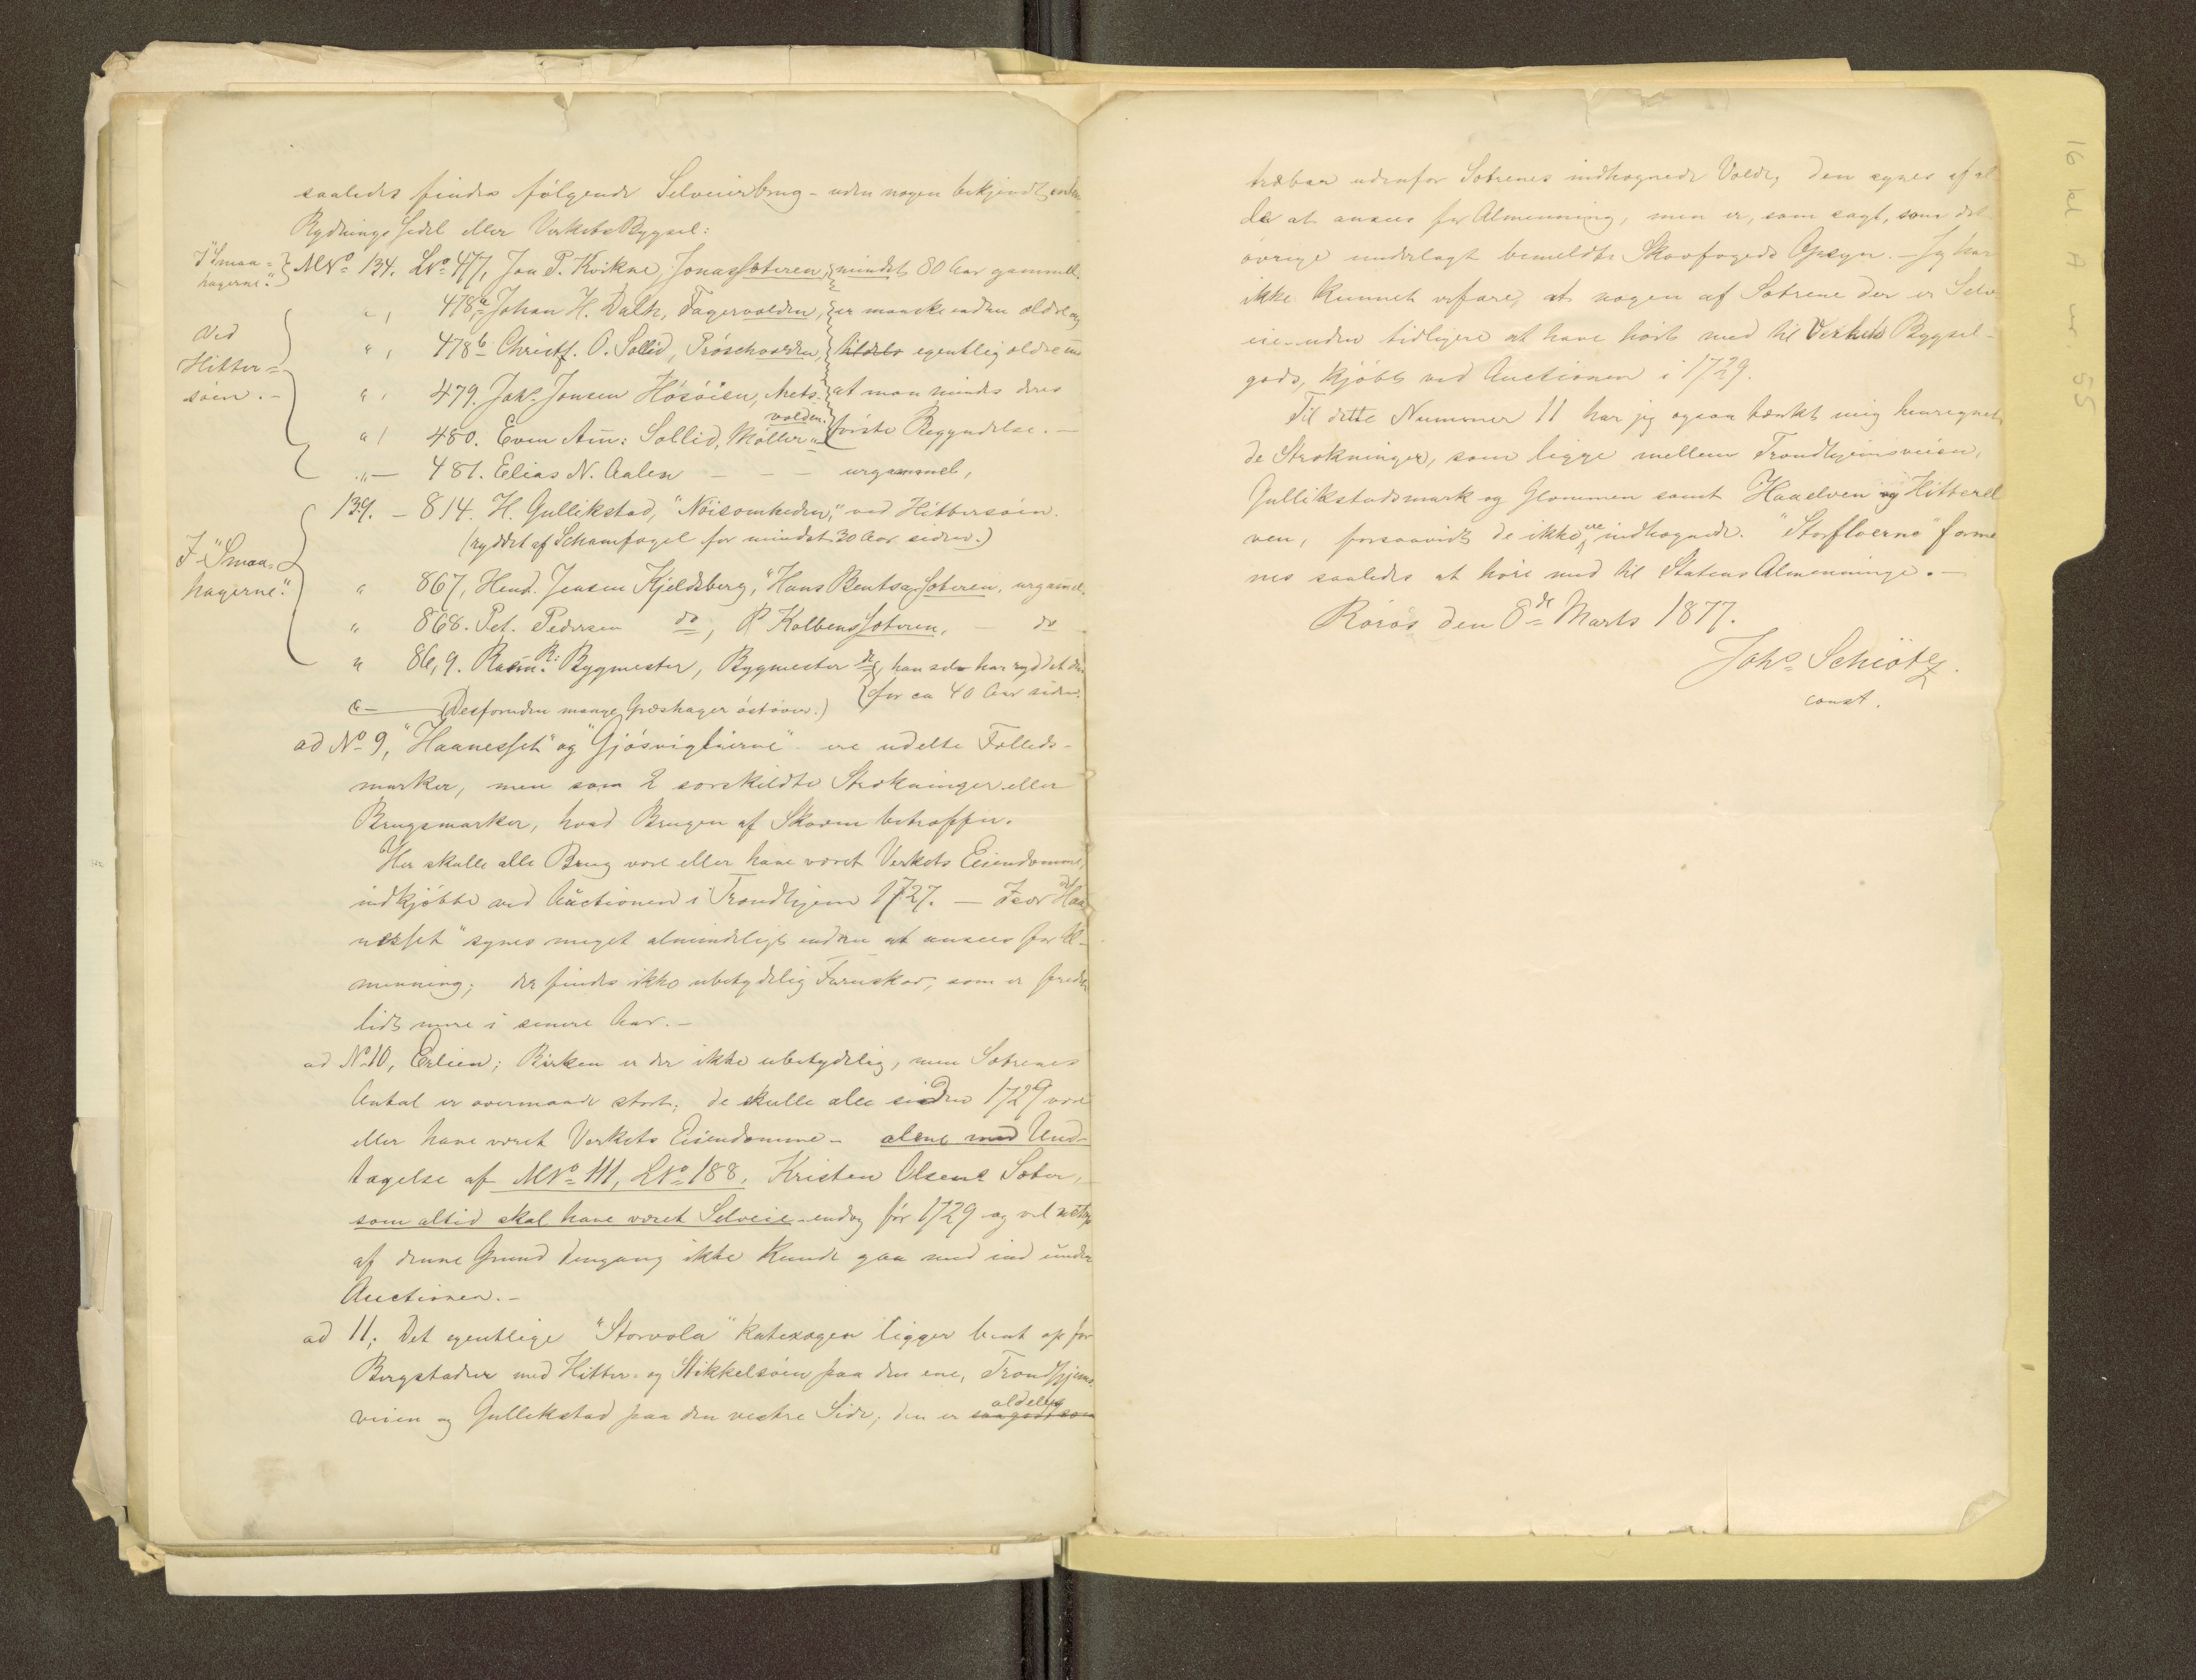 saaledes findes følgende Selveierbrug - uden nogen bekjendt enten
Rydningssedel eller Verkets Bygsel:
I "Smaa-
hagerne." MNo 134. LNo 477, Jon P. Kvikne, Jonassæteren, mindst 80 Aar gammel.
" , 478a Johan H. Dalh, Fagervolden, er maaske endnu ældre og
Ved
Hitter-
søien. -
" , 478b Christf. O. Sollid, Prøschvolden, tildels egentlig ældre end
" , 479. Johs. Jonsen Høsøien, Aats- at man mindes deres
volden.
" , 480. Even Am: Sollid, Møller " første Begyndelse. -
" - 481. Elias N. Aalen - - - urgammel,
139. - 814. H. Gullikstad, "Nøisomheden," ved Hittersøien.
(ryddet af Schamfogel for mindst 30 Aar siden.)
I "Smaa-
hagerne."
" 867, Hend. Jensen Kjeldsberg, "Hans Bentsa, Sæteren, urgammel.
" 868. Pet. Pedersen do, P Kolbenssæteren, - do
" 86,9. Rasm. R: Bygmester, Bygmester do, han selv har ryddet den
for ca 40 Aar siden.
(Desforuden mange Græshager østover.)
ad No 9, "Haanesset" og "Gjøsviglierne" ere udelte Fælleds-
marker, men som 2 særskildte Strækninger eller
Brugsmarker, hvad Brugen af Skoven betræffer.
Her skulle alle Brug være eller have været Verkets Eiendomme,
indkjøbte ved Auctionen i Trondhjem 1727. - Især "Haa-
nesset" synes meget almindeligt endnu at ansees for Al-
menning; der findes ikke ubetydelig Furuskov, som er fredet
lidt mere i senere Aar. -
ad No 10, Erlien; Birken er der ikke ubetydelig, men Sætrenes
Antal er overmaade stort; de skulle alle siden 1729 være
eller have været Verkets Eiendomme - alene med Und-
tagelse af MNo 111, LNo 188, Kristen Olsens Sæter,
som altid skal have været Selveie - endog før 1729 og vel netop
af denne Grund dengang ikke kunde gaa med ind under
Auctionen. -
ad 11; Det egentlige "Storvola" katexogen ligger bent op for
Bergstaden med Hitter- og Stikkelsøien paa den ene, Trondhjems-
aldeles
veien og Gullikstad paa den vestre Side; den er saagodtsom
træbar udenfor Sætrenes indhegnede Volde; den synes af al-
le at ansees for Almenning, men er, som sagt, som det
øvrige underlagt bemeldte Skovfogeds Opsyn. - Jeg har
ikke kunnet erfare, at nogen af Sætrene der er Selv-
eie - uden tidligere at have hørt med til Verkets Bygsel-
gods, kjøbt ved Auctionen i 1729.
Til dette Nummer 11 har jeg ogsaa tænkt mig henregnet
de Strækninger, som ligge mellem Trondhjemsveien,
Gullikstadsmark og Glommen samt Haaelven og Hitterel-
ven, forsaavidt de ikke ere indhegnede. "Storfloerne" forme-
nes saaledes at høre med til Statens Almenninge. -
Røros den 8de Marts 1877.
Johs. Schiøtz.
const.
16 kl A nr. 55